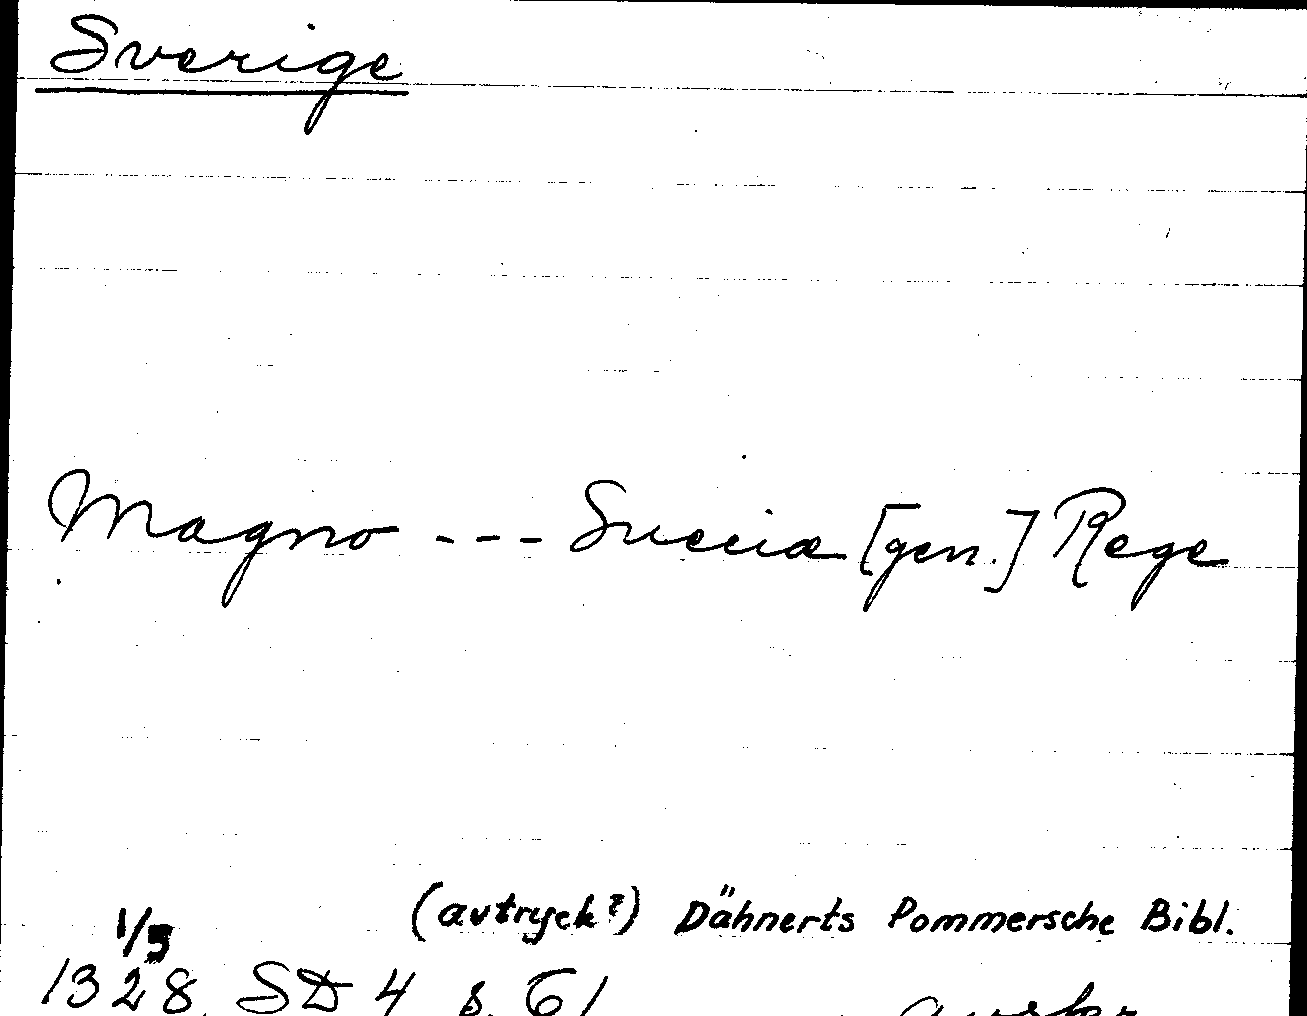 Sverige
Magno --- Suecie [gen.] Rege
(avtryck?) Dähnerts Pommersche Bibl.
1/5
1328 SD 4 s. 61 avskr